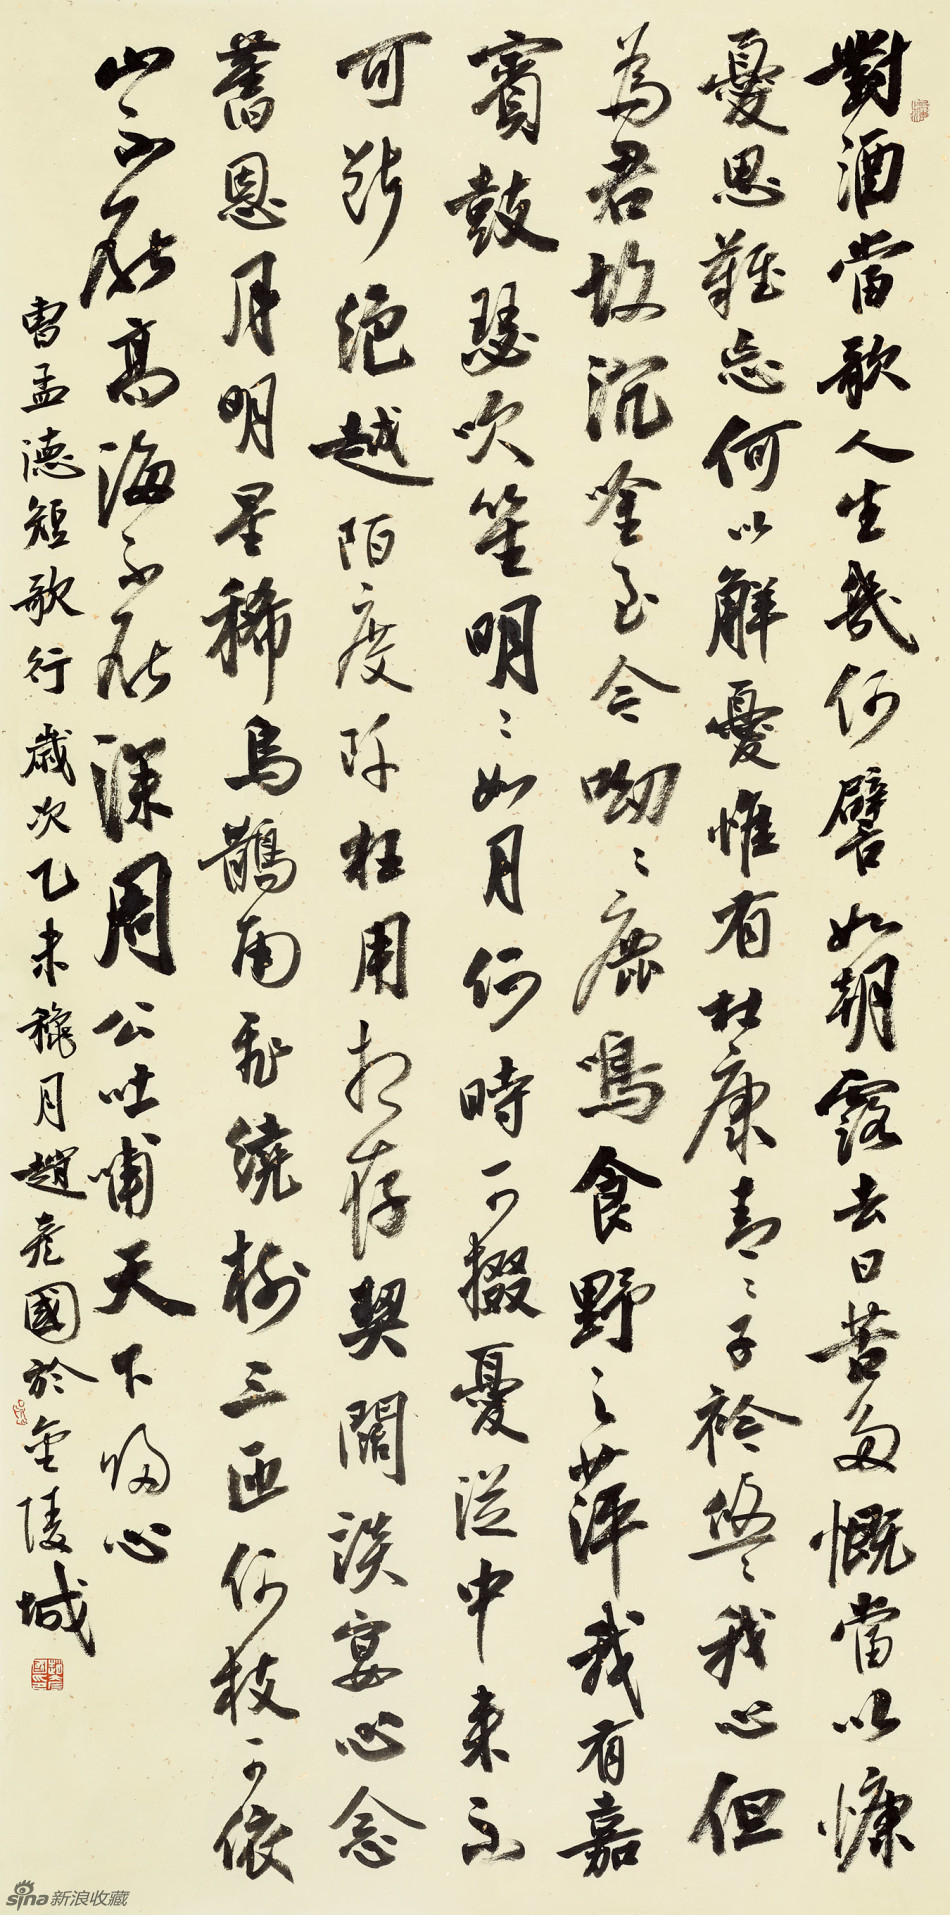 對酒當歌人生幾何譬如朝露去日苦多慨當以慷
憂思難忘何以解憂惟有杜康青〻子衿悠〻我心但
為君故沉唫至今呦〻鹿鳴食野之萍我有嘉
賓鼓瑟吹笙明〻如月何時可掇憂從中來不
可斷絕越陌度阡枉用相存契闊談宴心念
舊恩月明星稀烏鵲南飛繞樹三匝何枝可依
山不厭高海不厭深周公吐哺天下歸心
曹孟德短歌行歲次乙未穐月趙彥國於金陵城
sina新浪收藏